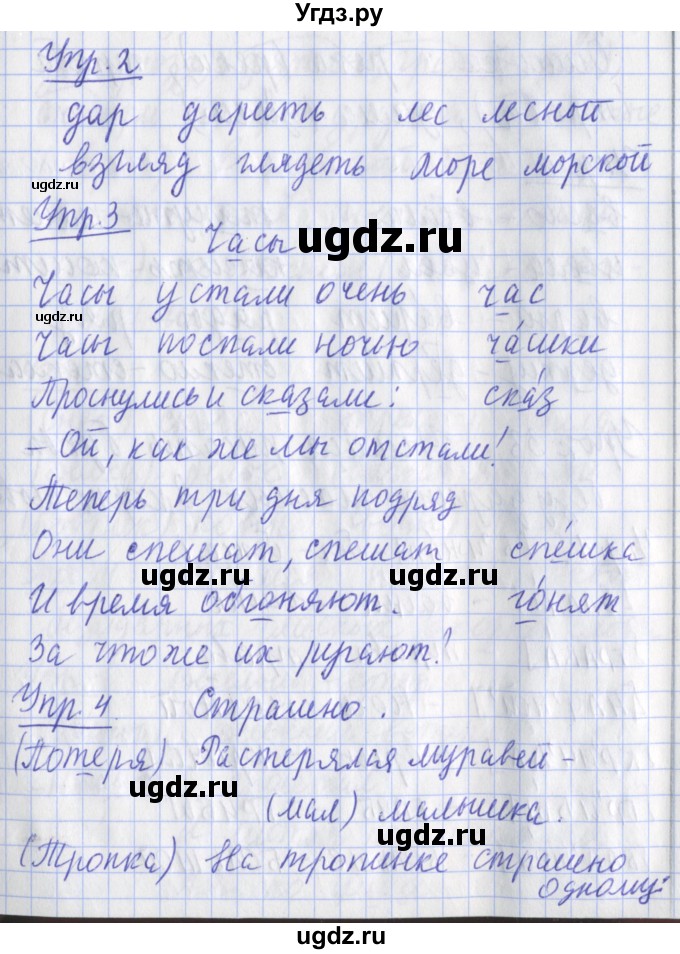 Угдз.ру
Упр. 2
дар дарить лес лесной
взгляд глядеть море морской
ugdz.ru
Упр. 3
Часы ugdz.ru
ugdz.ru
Часы устали очень час
ugdz.ru
Часы поспали ночью ча́сики
Проснулись и сказали: ска́з
- Ой, как же мы отстали!
Теперь три дня подряд
Они спешат, спешат спе́шка
ugdz.ru ugdz.ru
И время обгоняют. го́нят
За что же их ругают?
Упр. 4 Страшно.
(Потеря) Растерялся муравей -
ugdz.ru
(мал) малышка.
ugdz.ru
(Тропка) На тропинке страшно
одному:
ugdz.ru